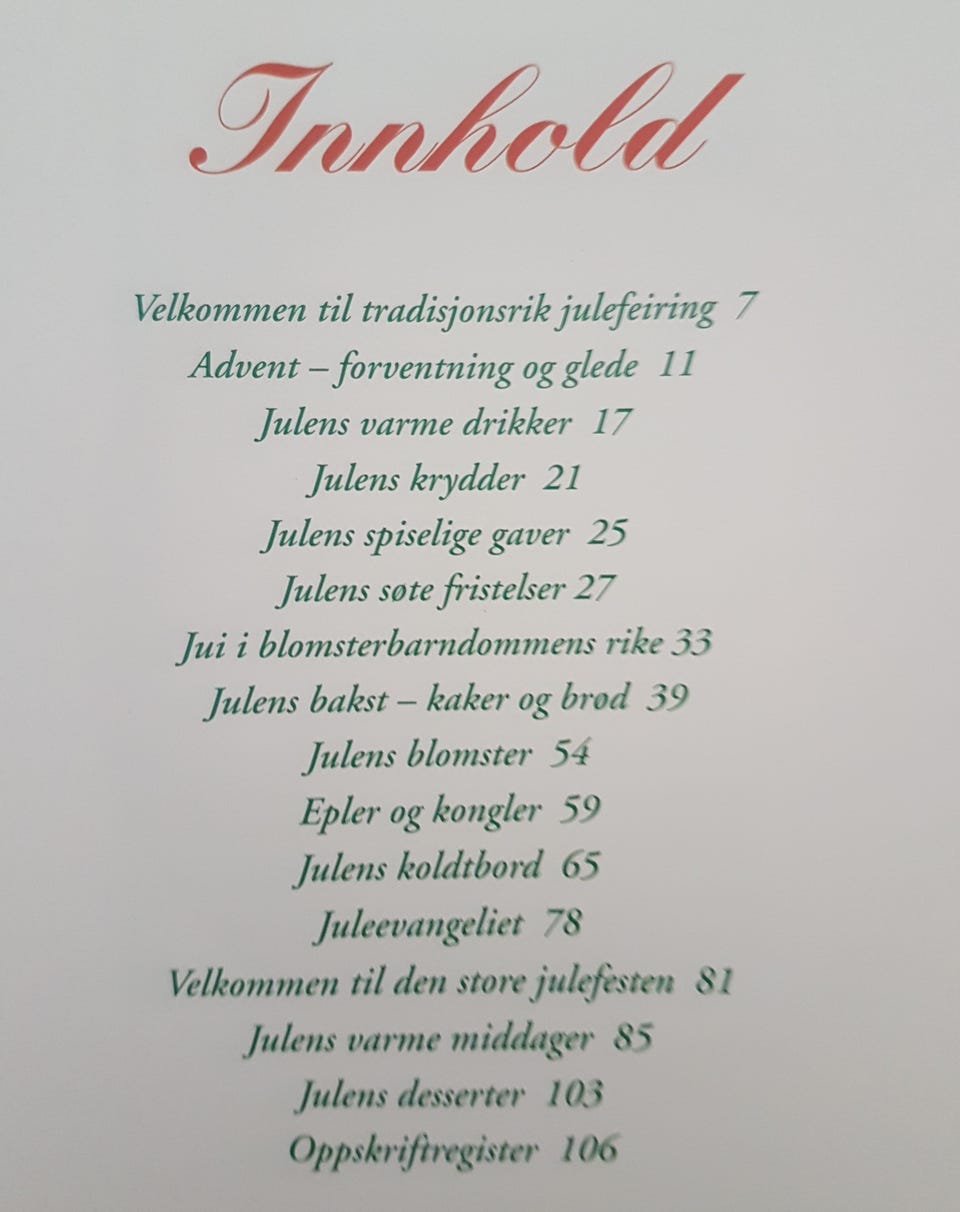 Innhold
Velkommen til tradisjonsrik julefeiring 7
Advent – forventning og glede 11
Julens varme drikker 17
Julens krydder 21
Julens spiselige gaver 25
Julens søte fristelser 27
Jui i blomsterbarndommens rike 33
Julens bakst – kaker og brød 39
Julens blomster 54
Epler og kongler 59
Julens koldtbord 65
Juleevangeliet 78
Velkommen til den store julefesten 81
Julens varme middager 85
Julens desserter 103
Oppskriftregister 106